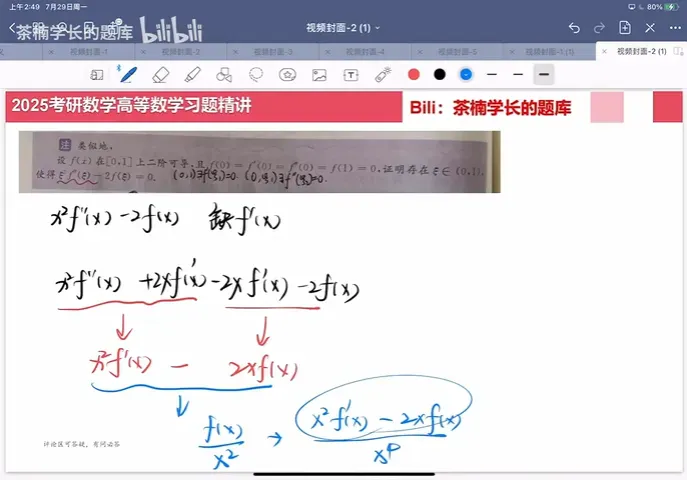 上午2:49 7月29日周一
80%
茶楠学长的题库 bilibili
视频封面-2 (1)
视频封面-1 视频封面-2 视频封面-3 视频封面-4 视频封面-5 视频封面 视频封面-1 (1) 视频封面-2 (1)
2025考研数学高等数学习题精讲 Bili：茶楠学长的题库
注 类似地,
设 f(x) 在 [0,1] 上二阶可导, 且 f(0)=f'(0)=f''(0)=f(1)=0, 证明存在 ξ∈(0,1),
使得 ξ²f''(ξ)-2f(ξ)=0. (0,1)∃f'(ξ₁)=0. (0,ξ₁)∃f''(ξ₂)=0.
x²f''(x)-2f(x) 缺f'(x)
x²f''(x)+2xf'(x)-2xf'(x)-2f(x)
x²f'(x) - 2xf(x)
f(x)/x² → x²f'(x)-2xf(x)/x⁴
评论区可答疑，有问必答